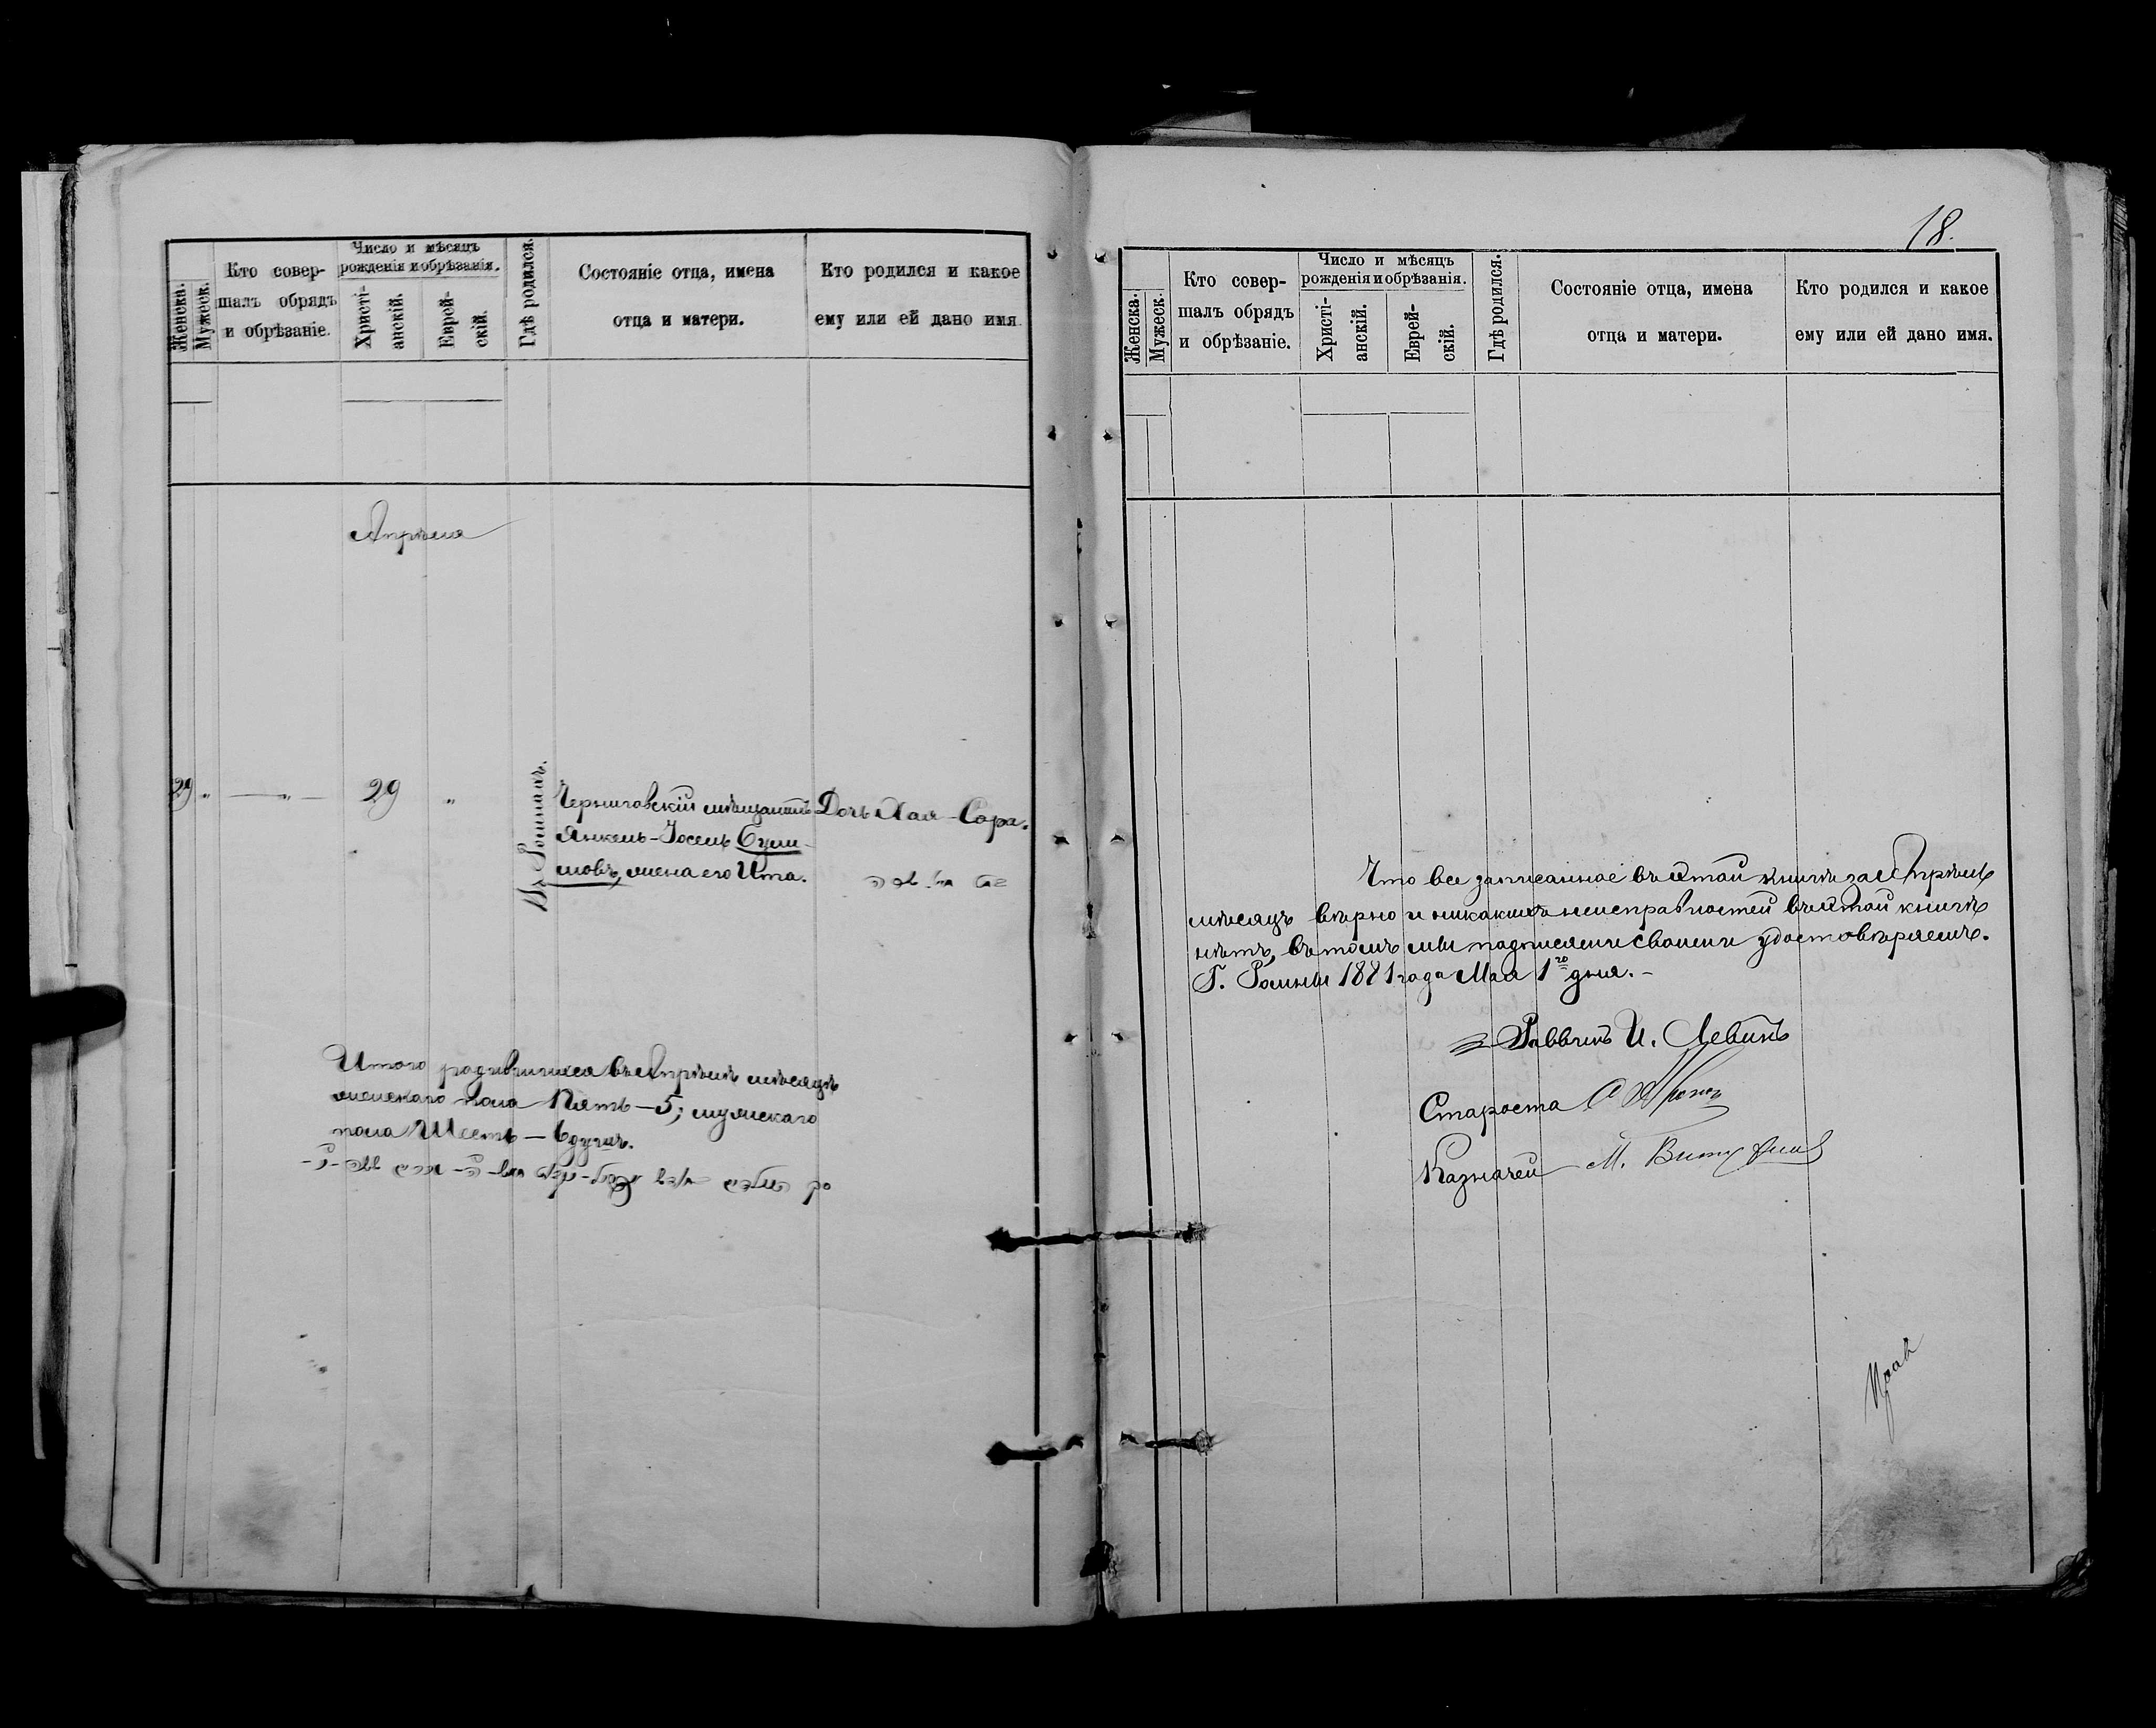 Женска.
Мужеск.
Кто совер-
шалъ обрядъ
и обрѣзаніе.
Число и мѣсяцъ
рожденія и обрѣзанія.
Христі-
анскій.
Еврей-
скій.
Гдѣ родился.
Состояніе отца, имена
отца и матери.
Кто родился и какое
ему или ей дано имя
Апрѣля
29 " — " — 29 "
Въ Ромнахъ.
Черниговскій мѣщанинъ
Янкель-Іосель
жена его Ита.
Дочь Хая-Сора.
Итого родившихся въ Апрѣлѣ мѣсяцѣ
женскаго пола Пять — 5; мужскаго
пола Шесть — 6 душъ.
18.
Женска.
Мужеск.
Кто совер-
шалъ обрядъ
и обрѣзаніе.
Число и мѣсяцъ
рожденія и обрѣзанія.
Христі-
анскій.
Еврей-
скій.
Гдѣ родился.
Состояніе отца, имена
отца и матери.
Кто родился и какое
ему или ей дано имя.
Что все записанное въ этой книгѣ за Апрѣль
мѣсяцъ вѣрно и никакихъ неисправностей въ этой книгѣ
нѣтъ, въ томъ мы подписями своими удостовѣряемъ.
Г. Ромны 1881 года Мая 1го дня. –
Раввинъ И. Левинъ
Староста
Казначей М.